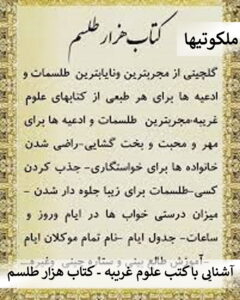 ملکوتیها
کتاب هزار طلسم
گلچینی از مجربترین ونایابترین طلسمات و
ادعیه ها برای هر طبعی از کتابهای علوم
غریبه-مجربترین طلسمات و ادعیه ها برای
مهر و محبت و بخت گشایی-راضی شدن
خانواده ها برای خواستگاری- جذب کردن
کسی-طلسمات برای زیبا جلوه دار شدن -
میزان درستی خواب ها در ایام وروز و
ساعات- جدول ایام -نام تمام موکلان ایام
-آموزش طالع بینی و ستاره چینی وغیره..
آشنایی با کتب علوم غریبه - کتاب هزار طلسم